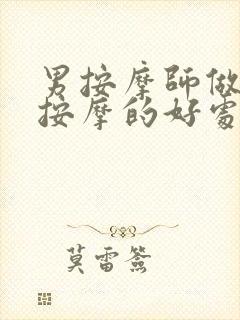 男按摩師做
按摩的好處
莫雷簽